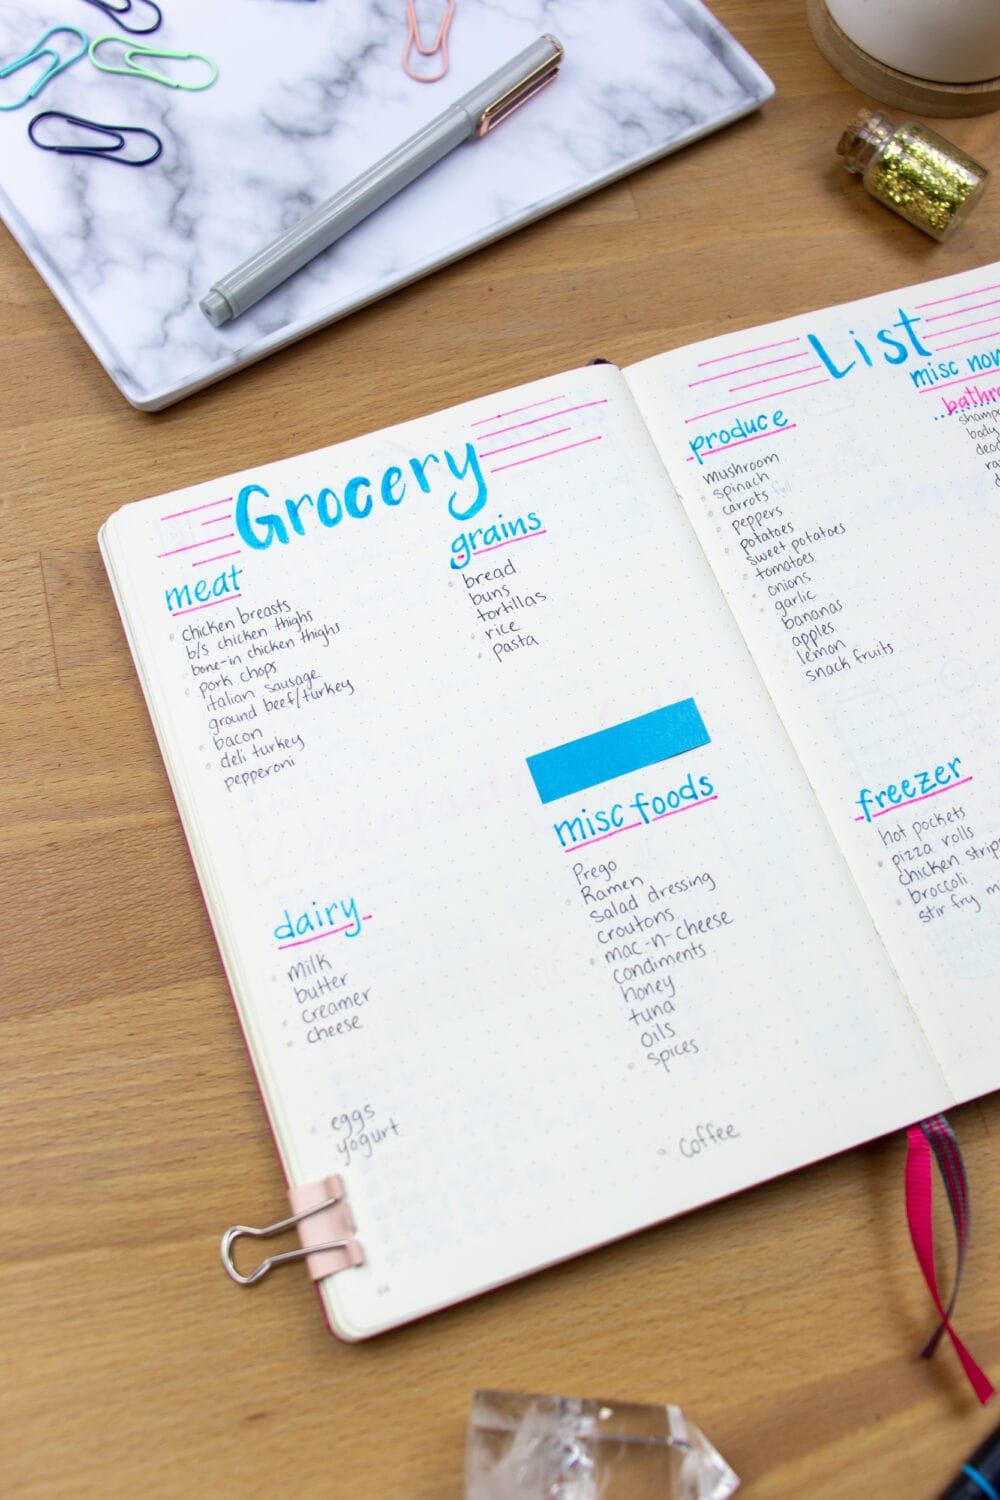 Grocery
meat
chicken breasts
b/s chicken thighs
bone-in chicken thighs
pork chops
italian sausage
ground beef/turkey
bacon
deli turkey
pepperoni
dairy
milk
butter
creamer
cheese
eggs
yogurt
grains
bread
buns
tortillas
rice
pasta
misc foods
Prego
Ramen
salad dressing
croutons
mac-n-cheese
condiments
honey
tuna
oils
spices
coffee
List
produce
mushroom
spinach
carrots
peppers
potatoes
sweet potatoes
tomatoes
onions
garlic
bananas
apples
lemon
snack fruits
freezer
hot pockets
pizza rolls
chicken strip
broccoli
stir fry mi
misc non
bathro
shampo
body
deod
ra
d